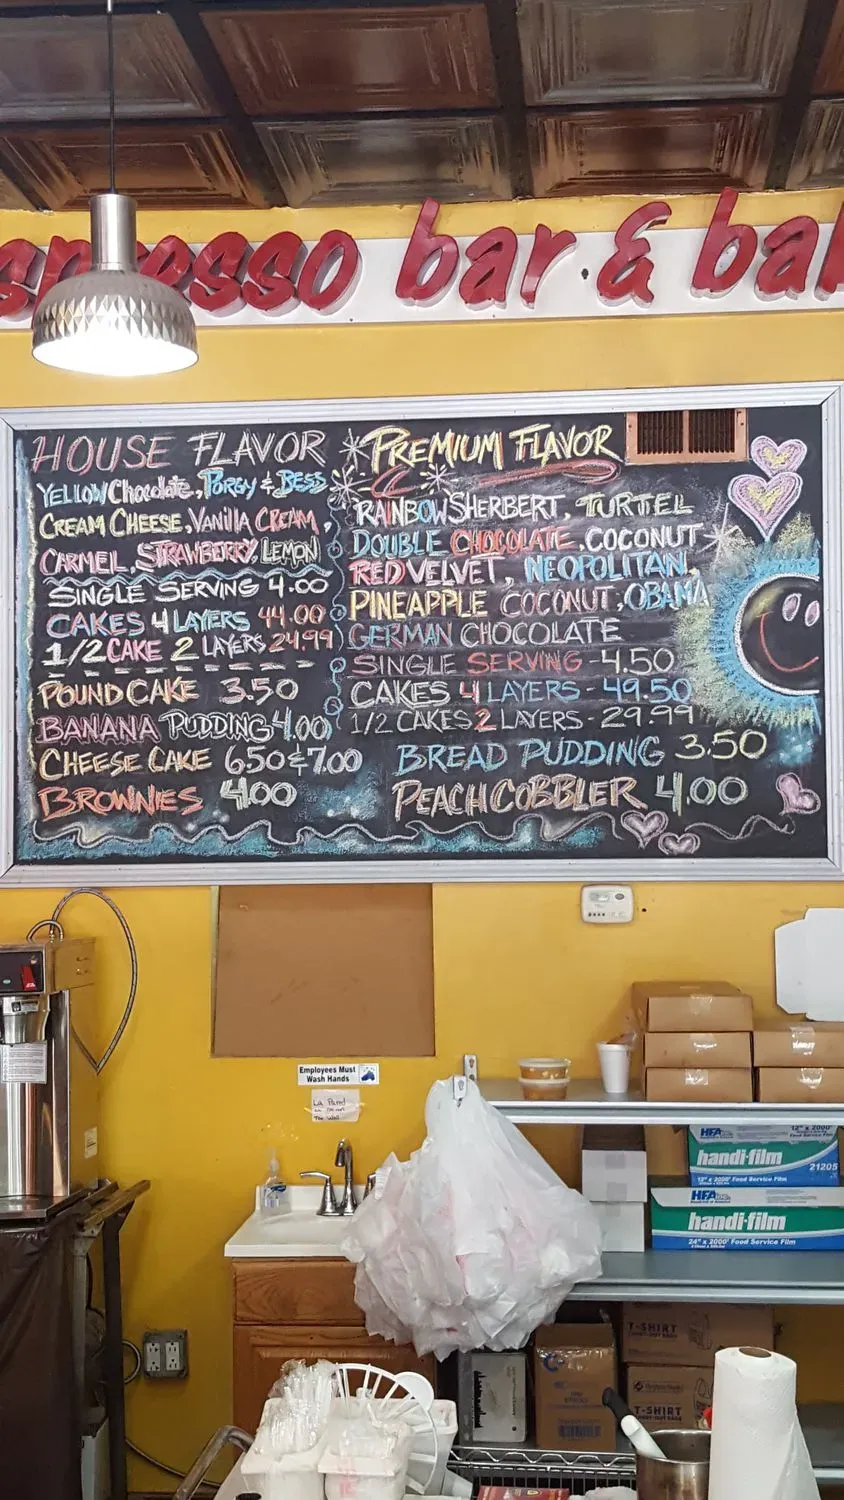 espresso bar & bak
HOUSE FLAVOR
YELLOW Chocolate, PORGY & BESS
CREAM CHEESE, VANILLA CREAM,
CARMEIL, STRAWBERRY, LEMON
SINGLE SERVING 4.00
CAKES 4 LAYERS 44.00
1/2 CAKE 2 LAYERS 24.99
POUND CAKE 3.50
BANANA PUDDING 4.00
CHEESE CAKE 6.50 & 7.00
BROWNIES 4.00
PREMIUM FLAVOR
RAINBOW SHERBERT, TURTEL
DOUBLE CHOCOLATE, COCONUT
RED VELVET, NEOPOLITAN,
PINEAPPLE COCONUT, OBAMA
GERMAN CHOCOLATE
SINGLE SERVING - 4.50
CAKES 4 LAYERS - 49.50
1/2 CAKES 2 LAYERS - 29.99
BREAD PUDDING 3.50
PEACH COBBLER 4.00
Employees Must
Wash Hands
The Wall
HFA inc. 12" x 2000'
handi-film
21205
12" x 2000' Food Service Film
HFA inc.
handi-film
24" x 2000' Food Service Film
T-SHIRT
T-SHIRT